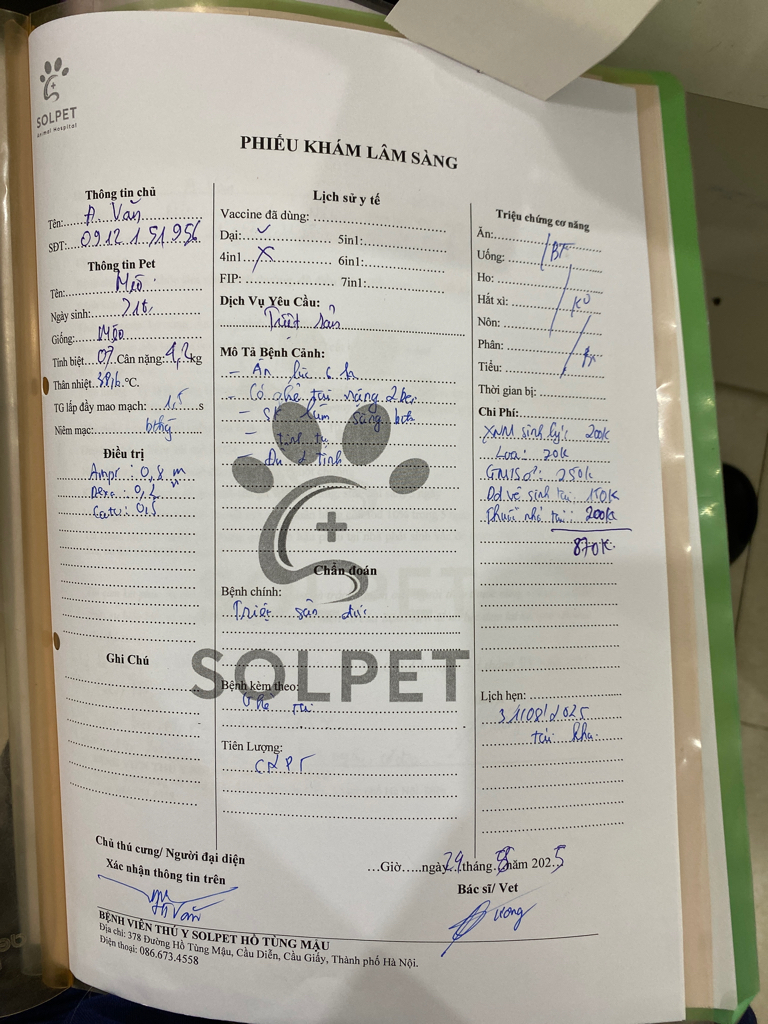 SOLPET
Animal Hospital
PHIẾU KHÁM LÂM SÀNG
Thông tin chủ
Tên: A. Văn
SĐT: 0912 151 956
Thông tin Pet
Tên: Mèo
Ngày sinh:
Giống: Mèo
Tính biệt Cân nặng: 4,2 kg
Thân nhiệt 38,6 °C.
TG lấp đầy mao mạch: 1,5 s
Niêm mạc: bthg
Điều trị
Ampi: 0,8 m
Dexa: 0,2
Cato: 0,5
Ghi Chú
Lịch sử y tế
Vaccine đã dùng:
Dại: ✓ 5in1:
4in1 X 6in1:
FIP: 7in1:
Dịch Vụ Yêu Cầu:
Triệt sản
Mô Tả Bệnh Cảnh:
- Ăn lúc 6h
- Có ghẻ tai nặng 2 bên
-
- tỉnh
- Đủ 2 tinh
Chẩn đoán
Bệnh chính:
Triệt sản đực
SOLPET
Bệnh kèm theo:
Ghẻ tai
Tiên Lượng:
Triệu chứng cơ năng
Ăn:
Uống: BT
Ho:
Hắt xì: KO
Nôn:
Phân: BT
Tiểu:
Thời gian bị:
Chi Phí:
XNM sinh lý: 200k
Loa: 70k
250k
Dd vệ sinh tai: 150K
Thuốc nhỏ tai: 200k
870k
Lịch hẹn:
31/08/2025
tái khá
Chủ thú cưng/ Người đại diện
Xác nhận thông tin trên
Văn
…Giờ…..ngày 29 tháng 8 năm 2025
Bác sĩ/ Vet
BỆNH VIÊN THÚ Y SOLPET HỒ TÙNG MẬU
Địa chỉ: 378 Đường Hồ Tùng Mậu, Cầu Diễn, Cầu Giấy, Thành phố Hà Nội.
Điện thoại: 086.673.4558